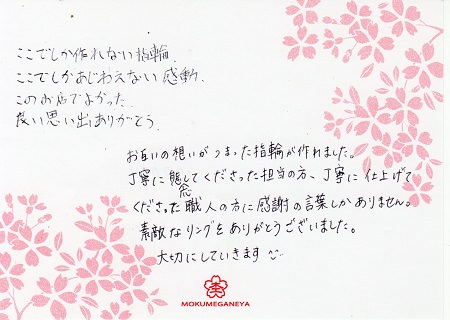 ここでしか作れない指輪
ここでしかあじわえない感動
このお店でよかった
良い思い出ありがとう
お互いの想いがつまった指輪が作れました。
丁寧に態してくださった担当の方、丁寧に仕上げて
応
くださった職人の方に感謝の言葉しかありません。
素敵なリングをありがとうございました。
大切にしていきます
MOKUMEGANEYA